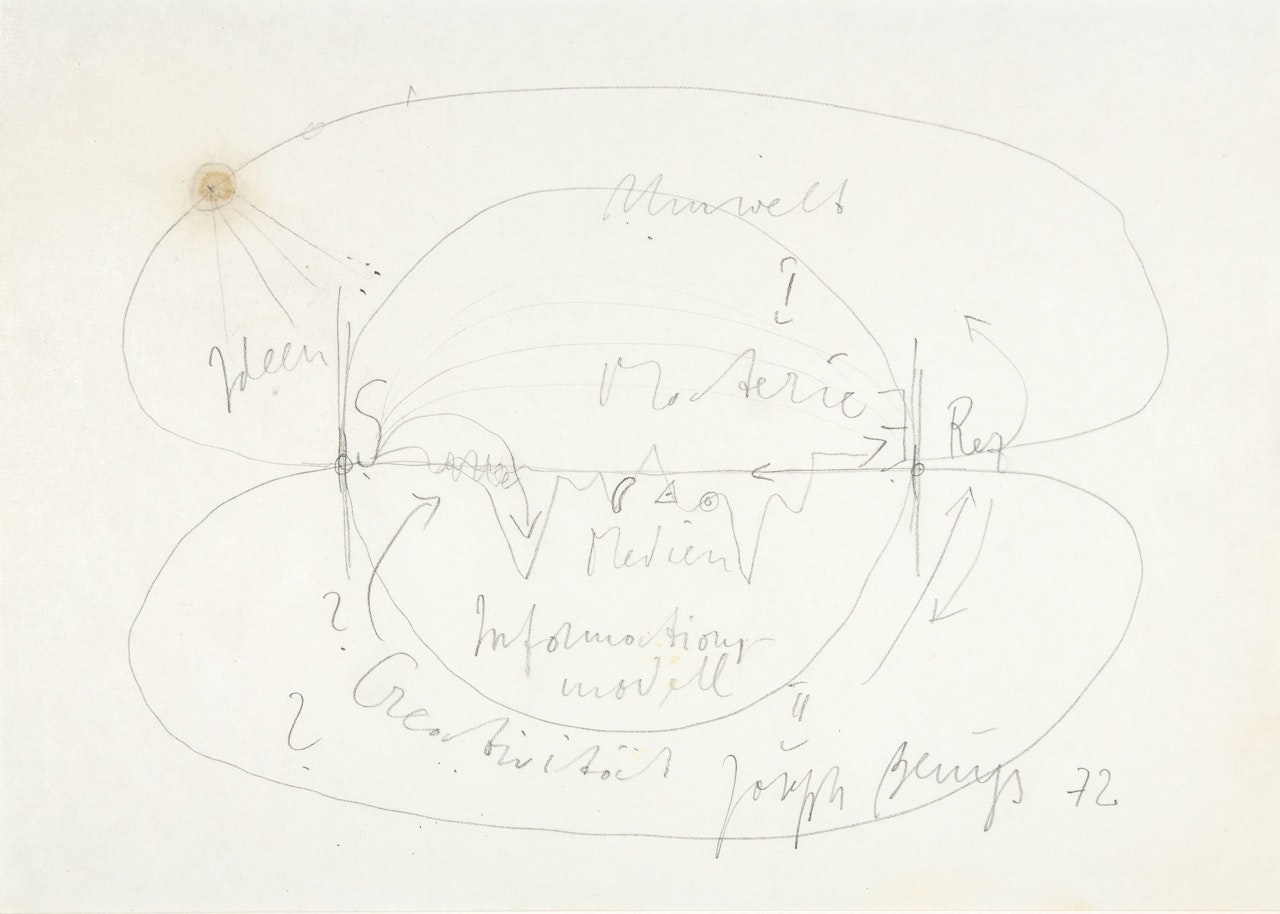 Umwelt
?
Ideen
Materie
S
Rez
Medien
?
Informations
modell
Creativität
?
Joseph Beuys 72